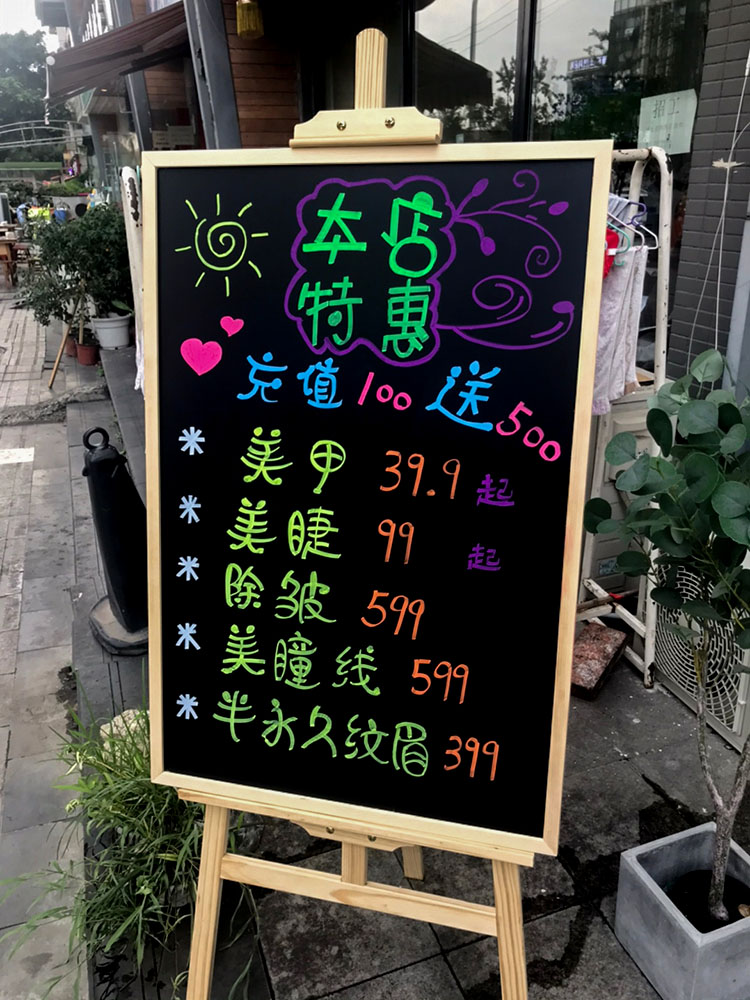 招工
本店
特惠
充值100送500
美甲 39.9起
美睫 99 起
除皱 599
美瞳线 599
半永久纹眉 399